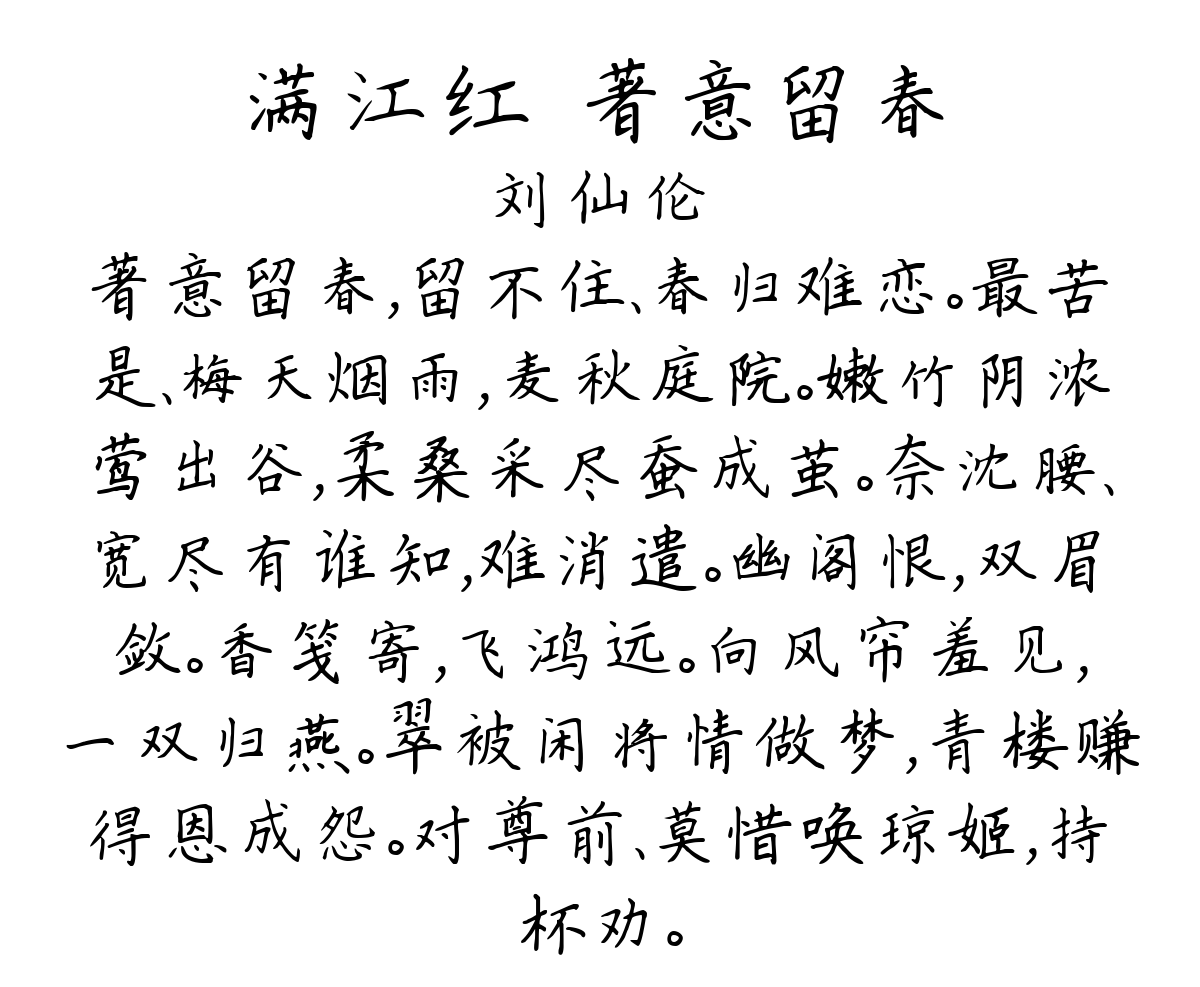 满江红 著意留春
刘仙伦
著意留春,留不住、春归难恋。最苦
是、梅天烟雨,麦秋庭院。嫩竹阴浓
莺出谷,柔桑采尽蚕成茧。奈沈腰、
宽尽有谁知,难消遣。幽阁恨,双眉
敛。香笺寄,飞鸿远。向风帘羞见,
一双归燕。翠被闲将情做梦,青楼赚
得恩成怨。对尊前、莫惜唤琼姬,持
杯劝。